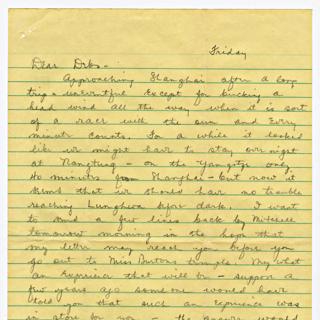 Friday
Dear Debs -
Approaching Shanghai after a long
trip - uneventful except for bucking a
head wind all the way when it is sort
of a race with the sun and every
minute counts. For a while it looked
like we might have to stay over night
at Nanking - on the Yangtze only
minutes from Shanghai - but now it
seems that we should have no trouble
reaching Lunghwa before dark. I want
to send a few lines back by Mitchell
tomorrow morning in the hope that
my letter may reach you before you
go out to Miss Burton's temple. My what
an experience that will be - suppose a
few years ago some one would have
told you that such an experience was
in store for you - the answer would